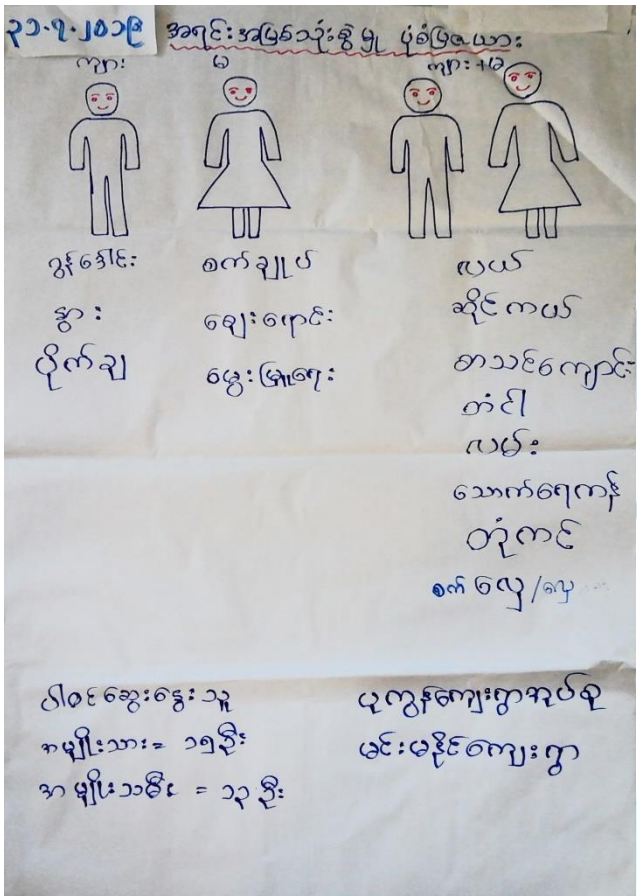 ၃၁-၇-၂၀၁၉
အရင်းအမြစ်သုံးစွဲမှု ပုံစံပြဇယား
ကျား
မ
ကျား+မ
ထွန်ဒေါင်း
နွား
ပိုက်ချ
စက်ချုပ်
ဈေးရောင်း
မွေးမြူရေး
လယ်
ဆိုင်ကယ်
စာသင်ကျောင်း
တံငါ
လမ်း
သောက်ရေကန်
တုံကင်
စက်လှေ/လှေ
ပါဝင်ဆွေးနွေးသူ
အမျိုးသား= ၁၅ဦး
အမျိုးသမီး = ၁၃ဦး
ပုကွန်ကျေးရွာအုပ်စု
မင်းမနိုင်ကျေးရွာ